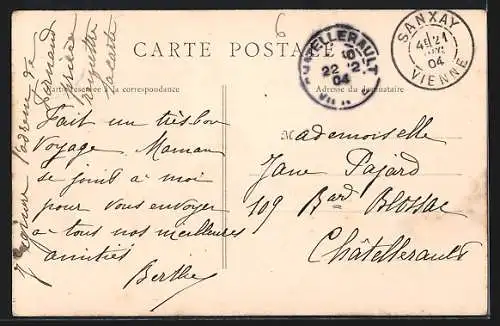 6
CARTE POSTALE
CHATELLERAULT
22 - 12
04
SANXAY
21
04
VIENNE
Partie réservée à la correspondance
Adresse du destinataire
Fait un très bon
voyage. Maman
se joint à moi
pour vous envoyer
à tous nos meilleures
amitiés
Berthe
l'adresse de
Fernand
la carte
Mademoiselle
Jane Pajard
109 Bard Blossac
Châtellerault